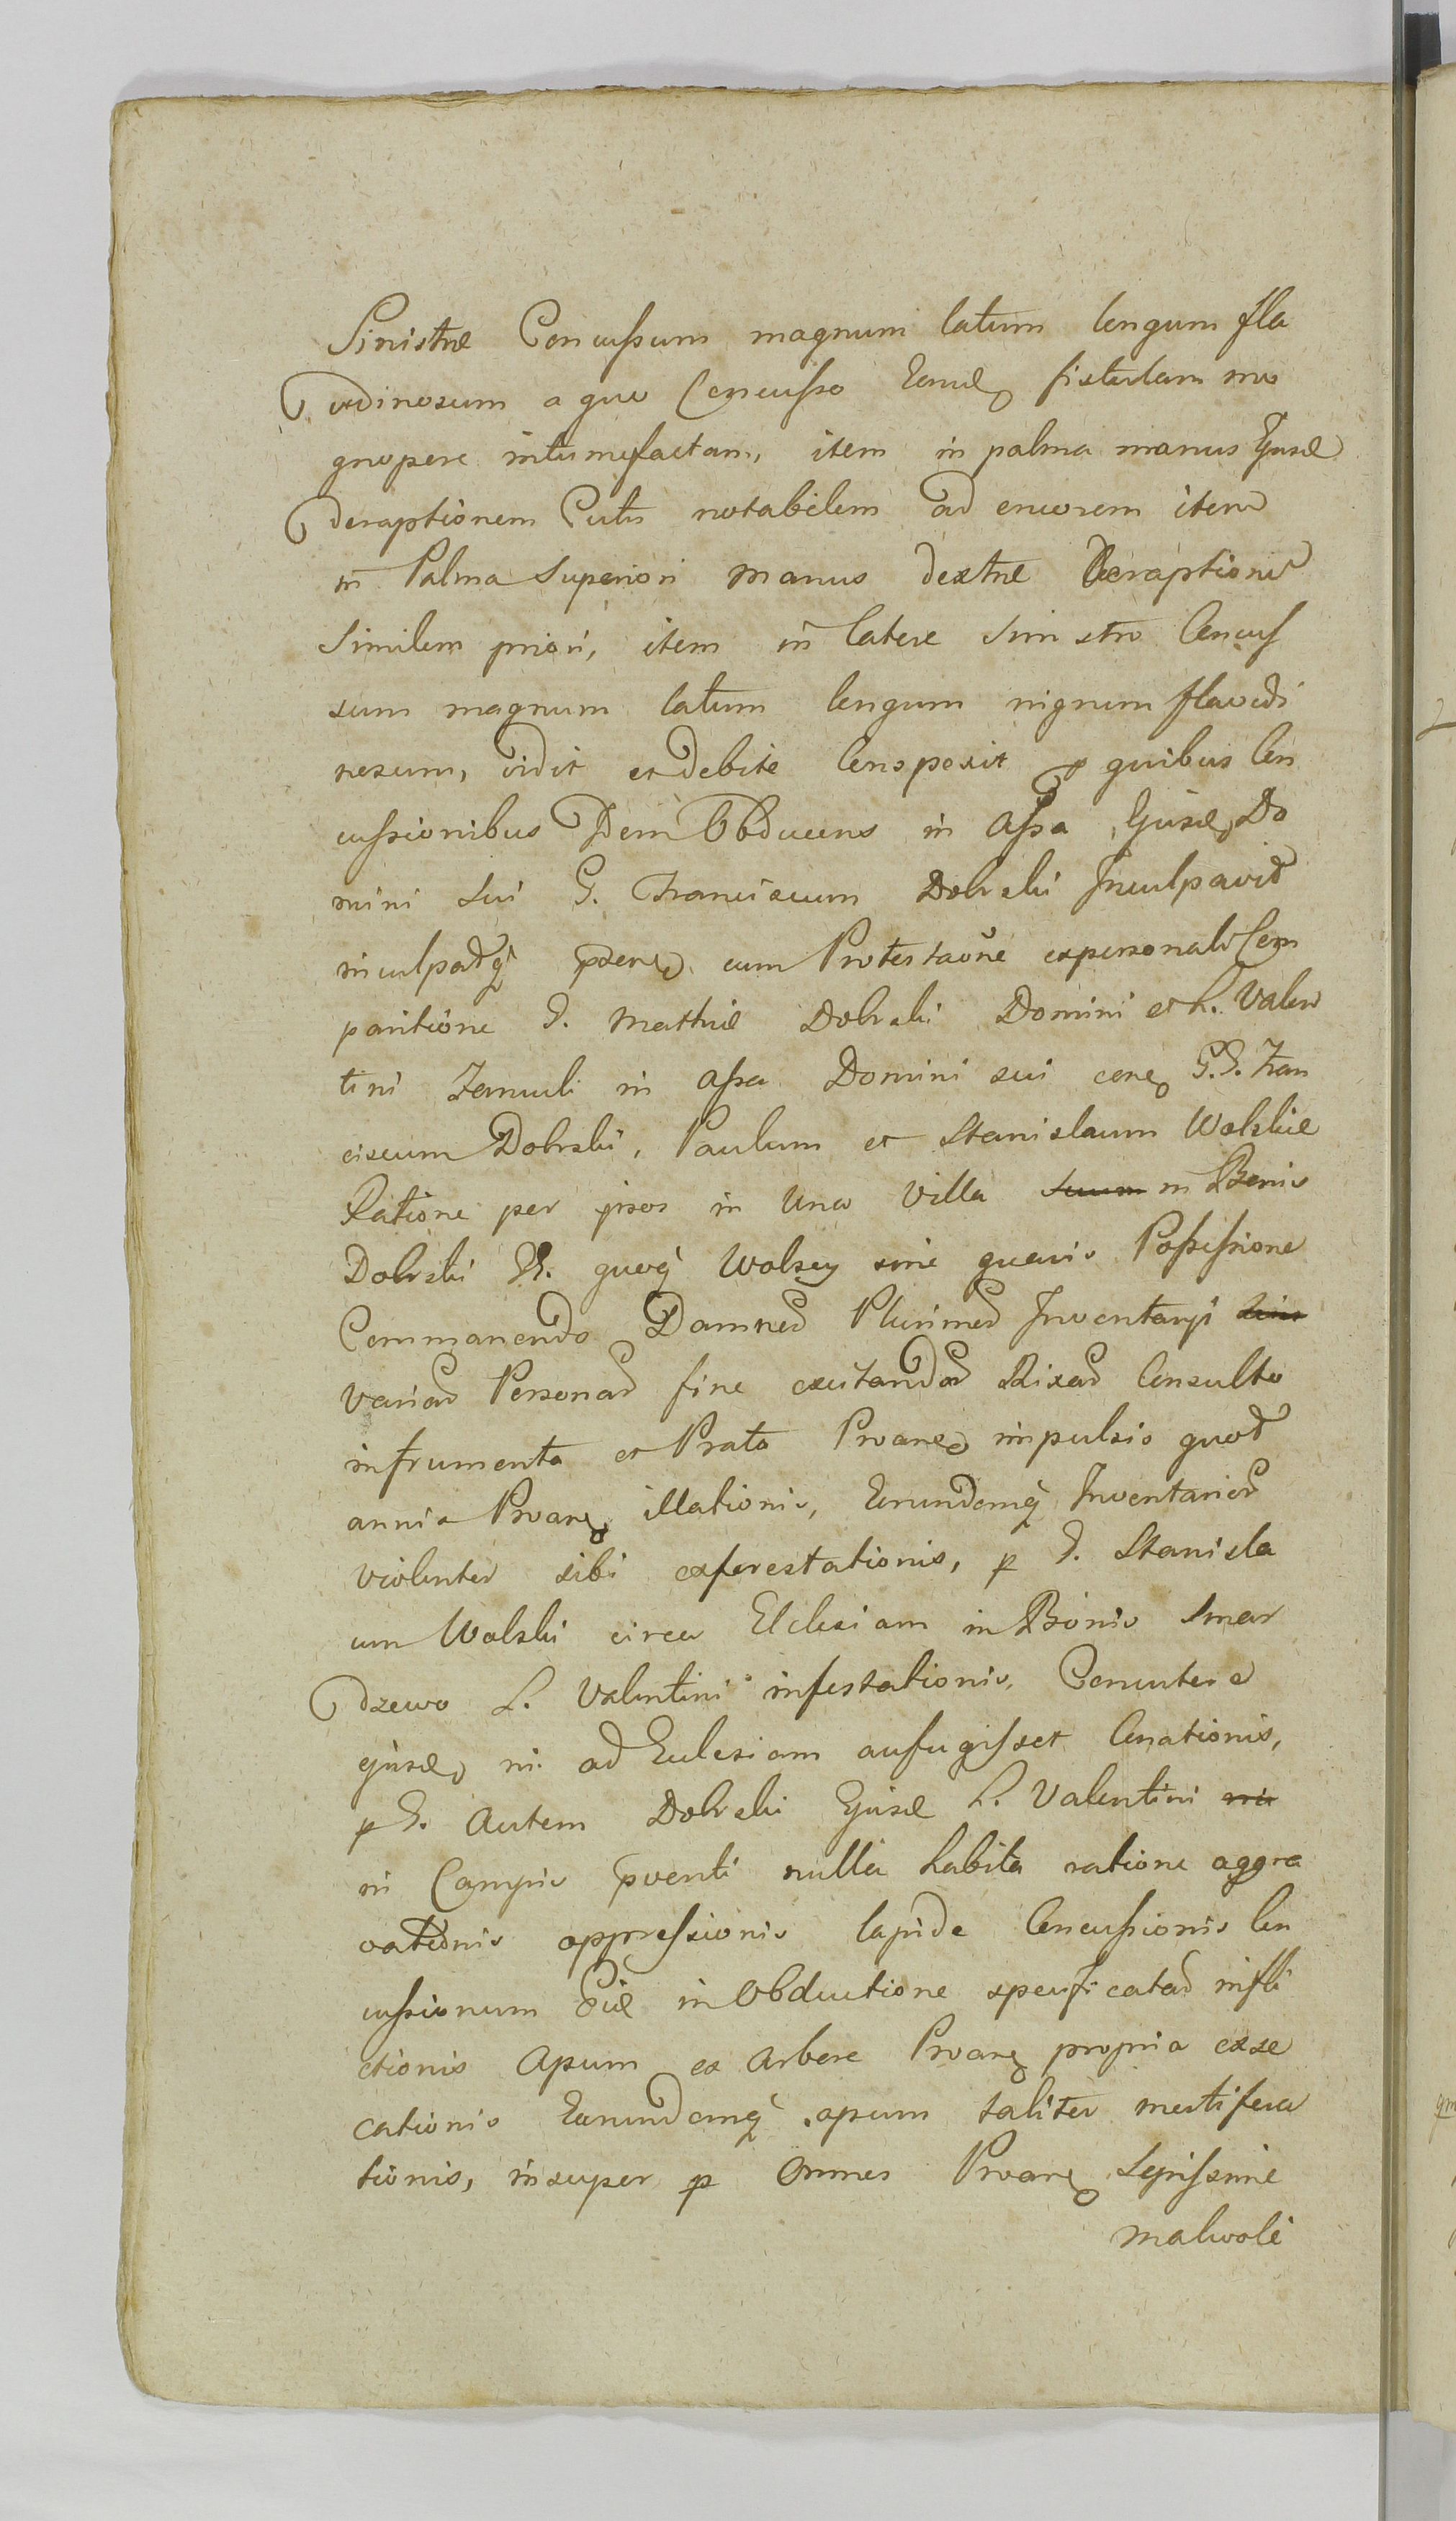 Sinistræ Concussum magnum latum longum fla
vdinosum a quo Concusso Eand fistulam ma
gnopere intumefactam, item in palma manus Ejusd
deraptionem Cutis notabilem ad cruorem item
in Palma Superiori manus dextræ Deraptione
Similem priori, item in latere sinistro Concus
sum magnum latum longum nigrum flavedi
nosum, vidit et debite Conspexit p quibus Con
cussionibus Idem Obducens in assa Ejusd Do
mini sui G. Franciscum Dobrski Inculpavit
inculpatq pdens cum Protestaone expersonali Com
paritione G. Mathiæ Dobrski Domini et L. Valen
tini Famuli in assa Domini sui cone G.G. Fran
ciscum Dobrski, Paulum et Stanislaum Wolskie
Ratione per ipsos in Una Villa in Bonis
Dobrski G. quoq Wolscy sine quavis Possessione
Commanendo Damnos Plurimos Inventarji
varias Personas fine excitandas Rixas Consulto
infrumenta et Prata Proane impulsio quod
annia Proane illationis, Eorundemq Inventarior
violenter sibi exforestationis, p G. Stanisla
um Wolski circa Eclesiam in Bonis Smar
dzewo L. Valentini infestationis, Concutere
ejusd ni ad Eclesiam aufugisset Conationis,
p G. autem Dobrski Ejusd L. Valentini
in Campis pventi nulla habita ratione aggra
vationis oppressionis lapide Concussionis Con
cussionum in Obductione specificatas infli
ctionis Apum ex Arbore Proane propria exse
cationis Earundemq apum taliter mortifica
tionis, insuper p Omnes Proane Sepissime
malvoli